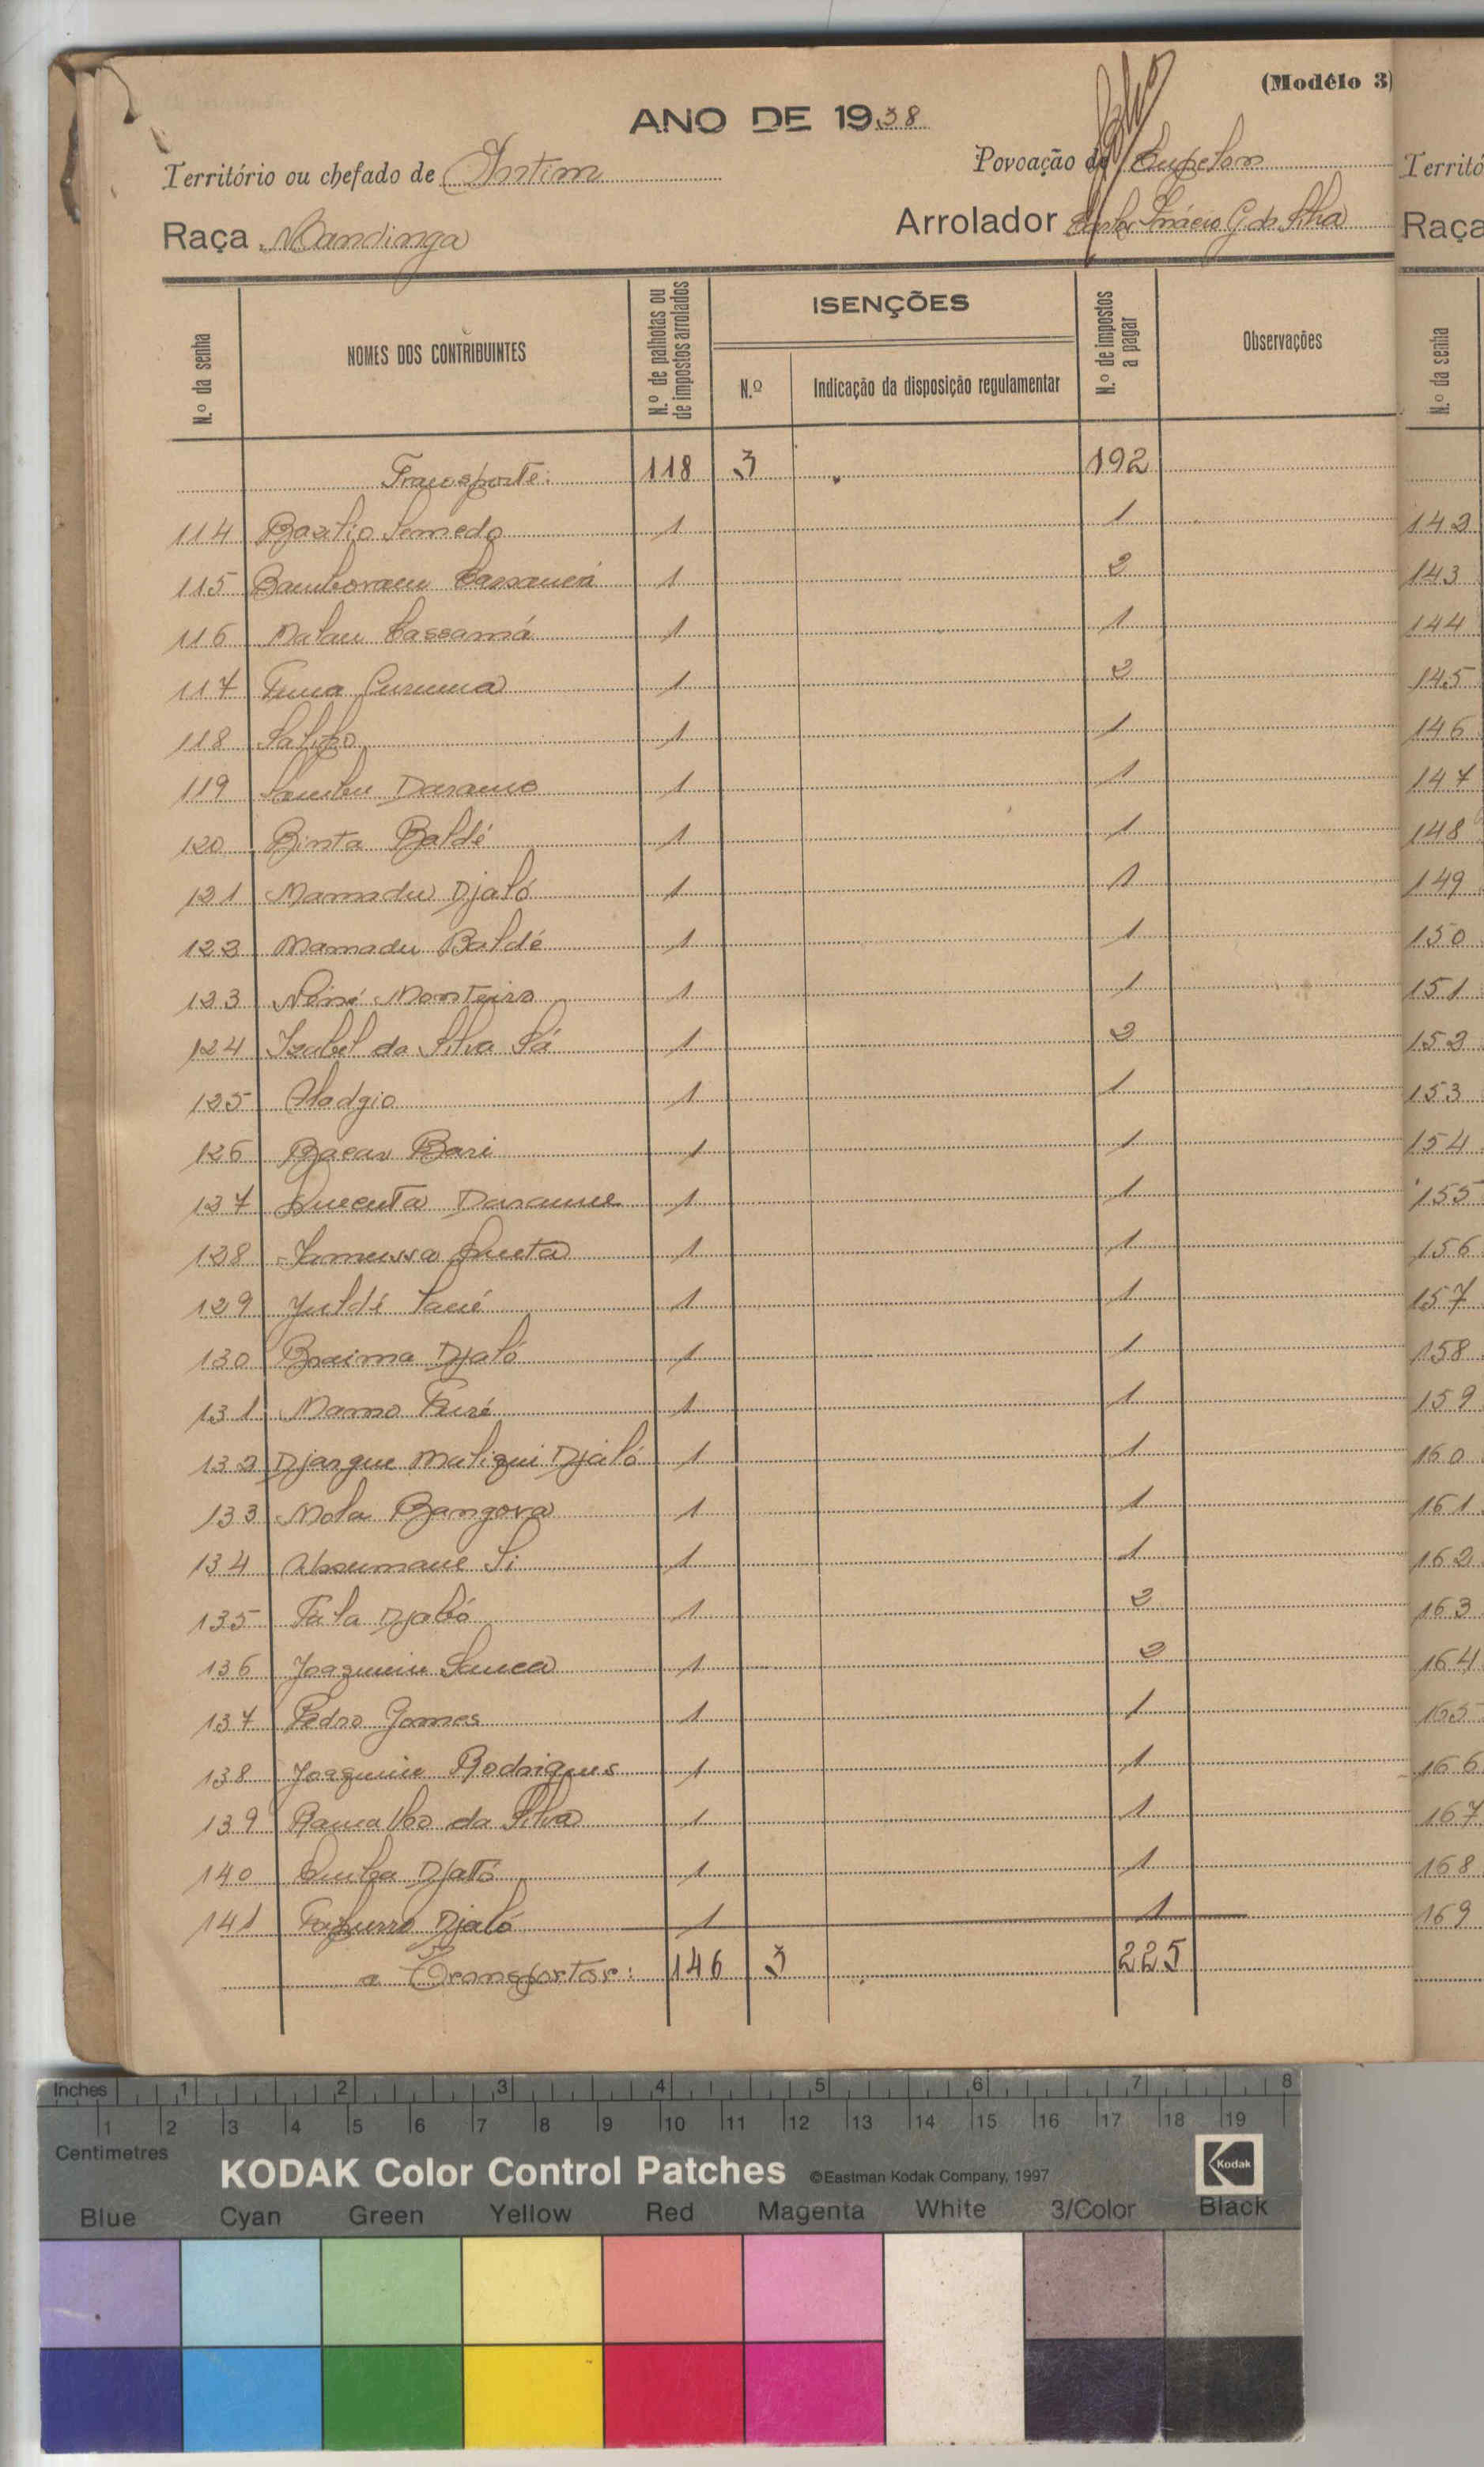 (Modélo 3)
ANO DE 1938
Território ou chefado de Intim Povoação de Cupelon
Raça Mandinga Arrolador Inácio G. da Silva
N.º da senha
NOMES DOS CONTRIBUINTES
N.º de palhotas ou de impostos arrolados
ISENÇÕES
N.º
Indicação da disposição regulamentar
N.º de impostos a pagar
Observações
Transporte: 118 3 192
114 Bazilio Semedo 1 1
115 1 2
116 Malan Cassamá 1 1
117 1 2
118 1 1
119 Darame 1 1
120 Binta Baldé 1 1
121 Mamadu Djaló 1 1
122 Mamadu Baldé 1 1
123 Monteiro 1 1
124 Izabel da Silva Sá 1 2
125 Aladgio 1 1
126 Bacar Bari 1 1
127 Quecuta Darame 1 1
128 1 1
129 Sané 1 1
130 Braima Djaló 1 1
131 Turé 1 1
132 Djargue Maliqui Djaló 1 1
133 Bangora 1 1
134 Si 1 1
135 Djaló 1 2
136 Joaquim Sanca 1 2
137 Pedro Gomes 1 1
138 Joaquim Rodrigues 1 1
139 Ramalho da Silva 1 1
140 Djaló 1 1
141 Djaló 1 1
a Transportar: 146 3 225
Territó
Raça
N.º da senha
142
143
144
145
146
147
148
149
150
151
152
153
154
155
156
157
158
159
160
161
162
163
164
165
166
167
168
169
Inches 1 2 3 4 5 6 7 8
1 2 3 4 5 6 7 8 9 10 11 12 13 14 15 16 17 18 19
Centimetres
KODAK Color Control Patches ©Eastman Kodak Company, 1997 Kodak
Blue Cyan Green Yellow Red Magenta White 3/Color Black